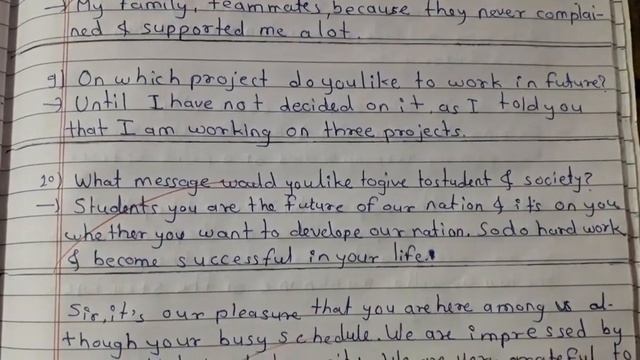 → My family, teammates, because they never complai-
ned & supported me alot.
9) On which project do you like to work in future?
→ Until I have not decided on it, as I told you
that I am working on three projects.
10) What message would you like to give to student & society?
→ Students you are the future of our nation & it's on you
whether you want to develope our nation. So do hard work
& become successful in your life.
Sir, it's our pleasure that you are here among us al-
though your busy schedule. We are impressed by